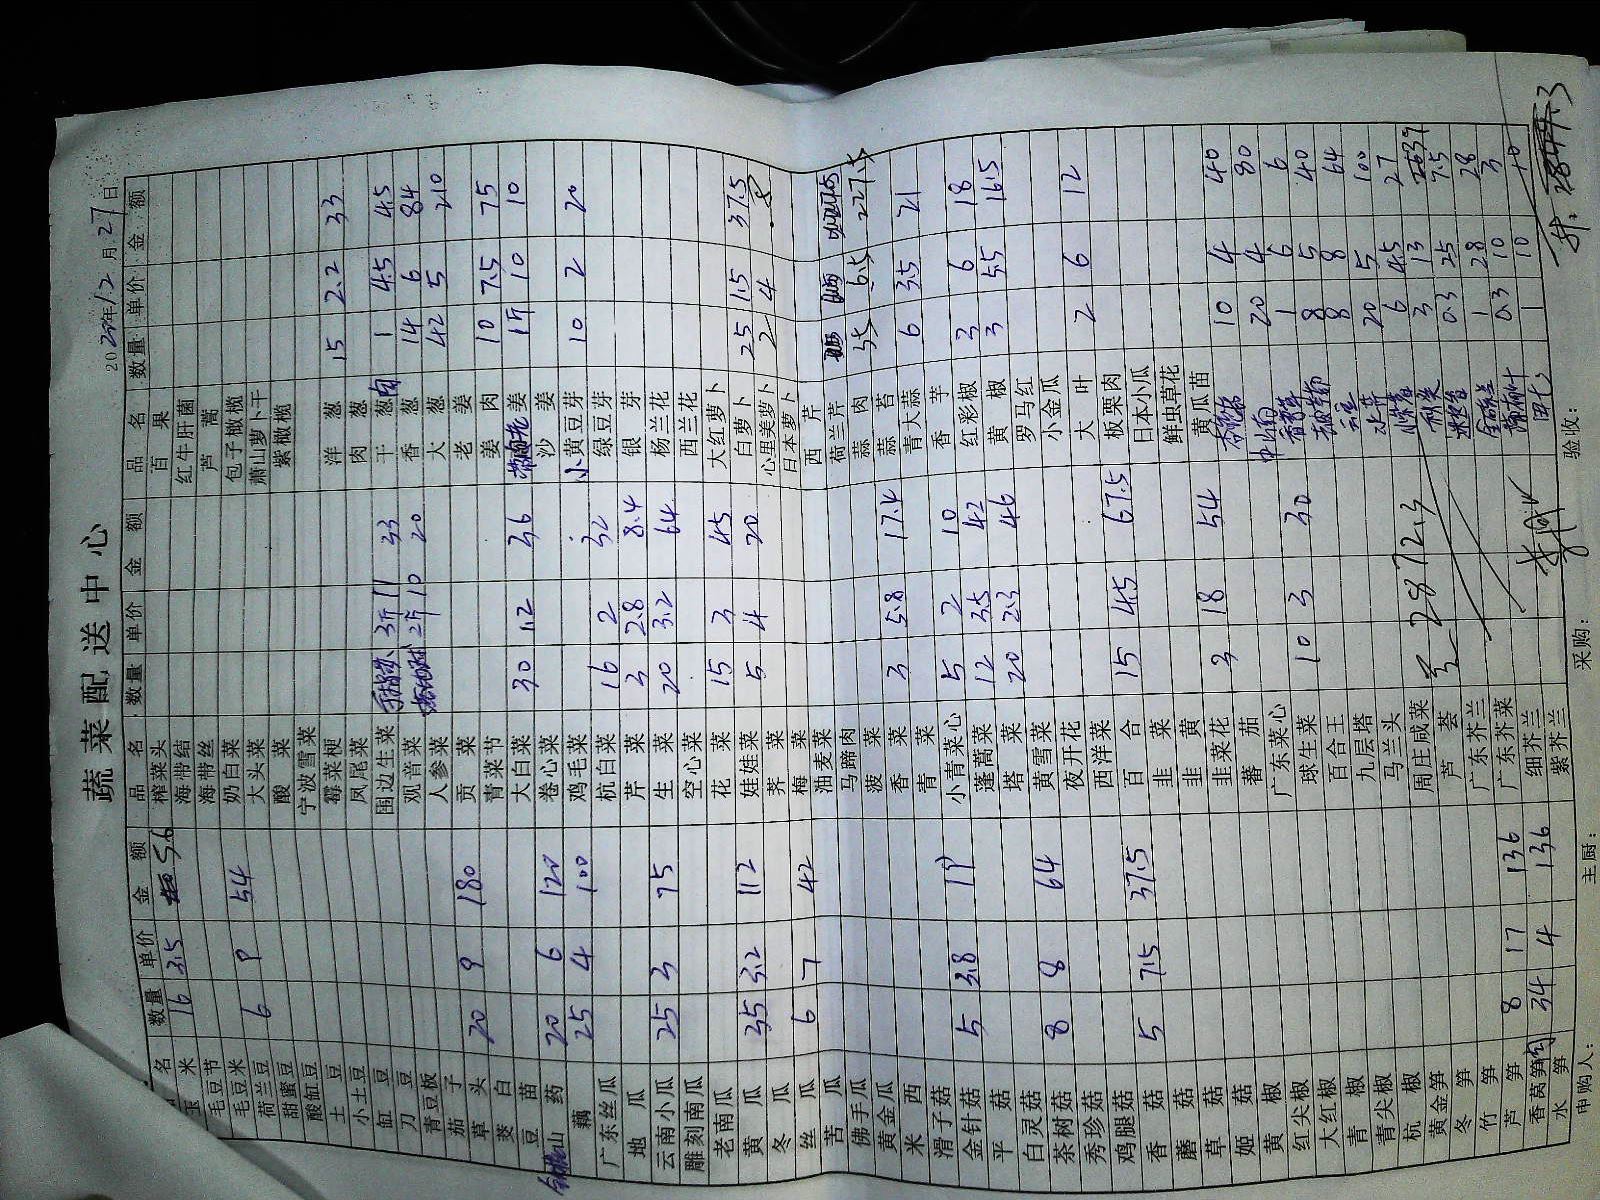 蔬菜配送中心
2022年12月27日
品名 数量 单价 金额 品名 数量 单价 金额 品名 数量 单价 金额
玉米 16 3.5 56 榨菜头 百果
毛豆节 海带结 红牛肝菌
毛豆米 6 9 54 海带丝 芦蒿
荷兰豆 奶白菜 包子橄榄
甜蜜豆 大头菜 萧山萝卜干
酸缸豆 酸菜 紫橄榄
土豆 宁波雪菜
小土豆 霉菜梗 洋葱 15 2.2 33
缸豆 凤尾菜 肉葱
刀豆 围边生菜 3斤 11 33 干葱肉 1 4.5 4.5
青豆板 观音菜 2斤 10 20 香葱 14 6 84
茄子 人参菜 大葱 42 5 210
草头 20 9 180 贡菜 老姜
茭白 青菜节 姜肉 10 7.5 75
豆苗 大白菜 30 1.2 36 姜 1斤 10 10
山药 20 6 120 卷心菜 沙姜
藕 25 4 100 鸡毛菜 小黄豆芽 10 2 20
广东丝瓜 杭白菜 16 2 32 绿豆芽
地瓜 芹菜 3 2.8 8.4 银芽
云南小瓜 25 3 75 生菜 20 3.2 64 杨兰花
雕刻南瓜 空心菜 西兰花
老南瓜 花菜 15 3 45 大红萝卜
黄瓜 35 3.2 112 娃娃菜 5 4 20 白萝卜 25 1.5 37.5
冬瓜 荠菜 心里美萝卜 2 4 8
丝瓜 6 7 42 梅菜 日本萝卜
苦瓜 油麦菜 西芹
佛手瓜 马蹄肉 荷兰芹
黄金瓜 菠菜 蒜肉 35 6.5 227.5
米西 香菜 3 5.8 17.4 蒜苔
滑子菇 青菜 青大蒜 6 3.5 21
金针菇 5 3.8 19 小青菜心 5 2 10 香芋
平菇 蓬蒿菜 12 3.5 42 红彩椒 3 6 18
白灵菇 塔菜 20 2.3 46 黄椒 3 5.5 16.5
茶树菇 8 8 64 黄雪菜 罗马红
秀珍菇 夜开花 小金瓜
鸡腿菇 西洋菜 大叶 2 6 12
香菇 5 7.5 37.5 百合 15 4.5 67.5 板栗肉
蘑菇 韭菜 日本小瓜
草菇 韭黄 鲜虫草花
姬菇 韭菜花 3 18 54 黄瓜苗
黄椒 蕃茄 10 4 40
红尖椒 广东菜心 20 4 80
大红椒 球生菜 10 3 30 1 6 6
青椒 百合王 8 5 40
青尖椒 九层塔 8 8 64
杭椒 马兰头 20 5 100
黄金笋 周庄咸菜 6 4.5 27
冬笋 芦荟 3 13 39
竹笋 广东芥兰 0.3 25 7.5
芦笋 8 17 136 广东芥菜 1 28 28
香莴笋肉 34 4 136 细芥兰 0.3 10 3
水笋 紫芥兰 1 10 10
2872.3
2844.3
申购人： 主厨： 采购： 验收：